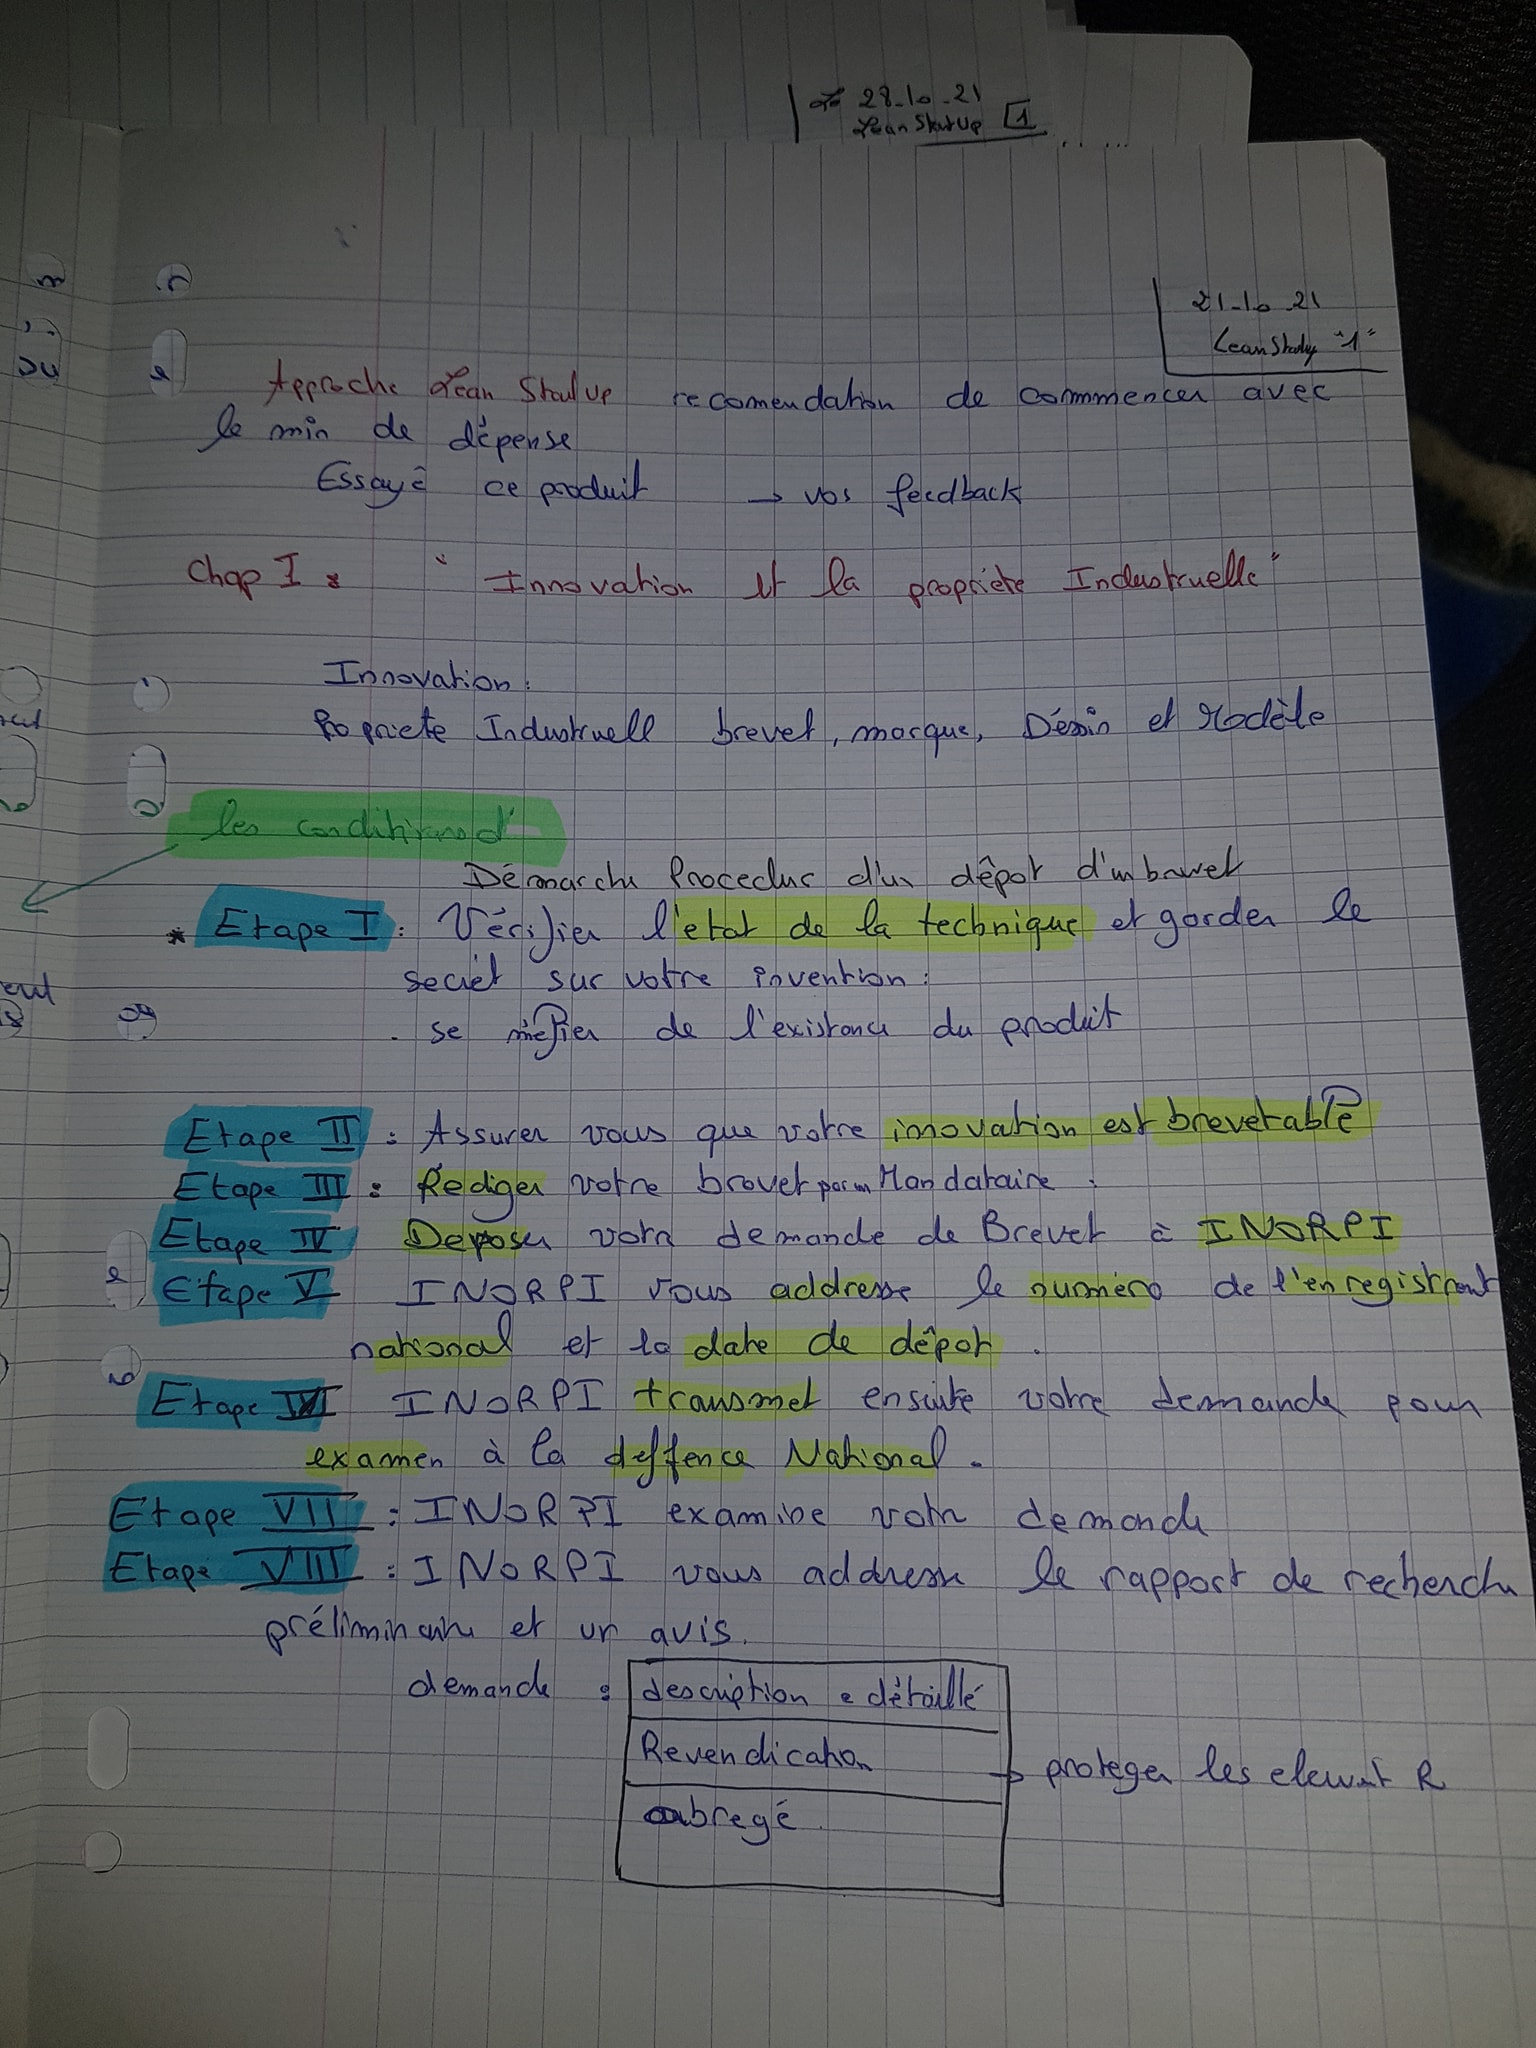 Le 28-10-21
Lean StartUp 1
21-10-21
Lean Startup "1"
Approche Lean StartUp recomendation de commmencer avec
le min de dépense
Essayé ce produit → vos feedback
Chap I : " Innovation et la propriete Industruelle"
Innovation :
Propriete Industruell brevet, marque, Déssin et Modèle
les conditions d'
Démarche Procedure d'un dépot d'un brevet
* Etape I : Vérifier l'etat de la technique et garder le
secret sur votre invention :
. se méfier de l'existance du produit
Etape II : Assurer vous que votre innovation est brevetable
Etape III : Rediger votre brevet par un Mandataire :
Etape IV Deposer votre demande de Brevet à INORPI
Etape V INORPI vous addresse le numéro de l'enregistrement
national et la date de dépot .
Etape VI INORPI transmet ensuite votre demande pour
examen à la deffence National .
Etape VII : INORPI examine votre demande
Etape VIII : INORPI vous addresse le rapport de recherche
préliminaire et un avis.
demande : description détaillé
Revendication → proteger les element R
abregé